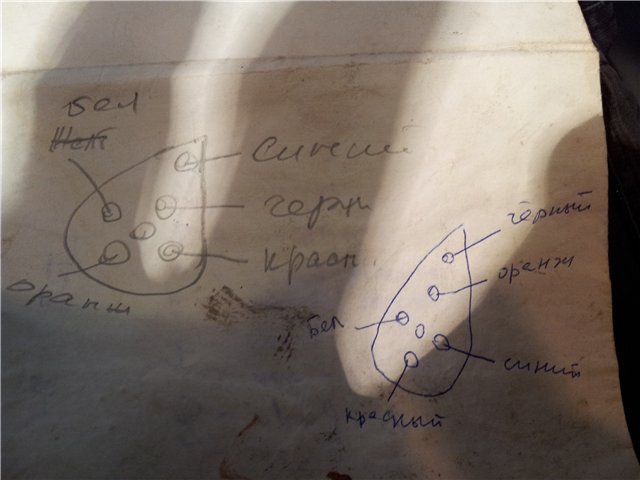 бел
жел
синий
черн
красн.
оранж
чёрный
оранж
бел
синий
красный